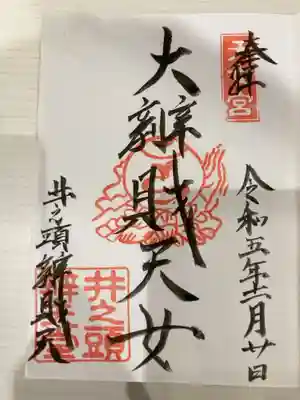 奉拝
令和五年十二月廿日
大辨財天女
井之頭辨財天
井之頭
辨天堂